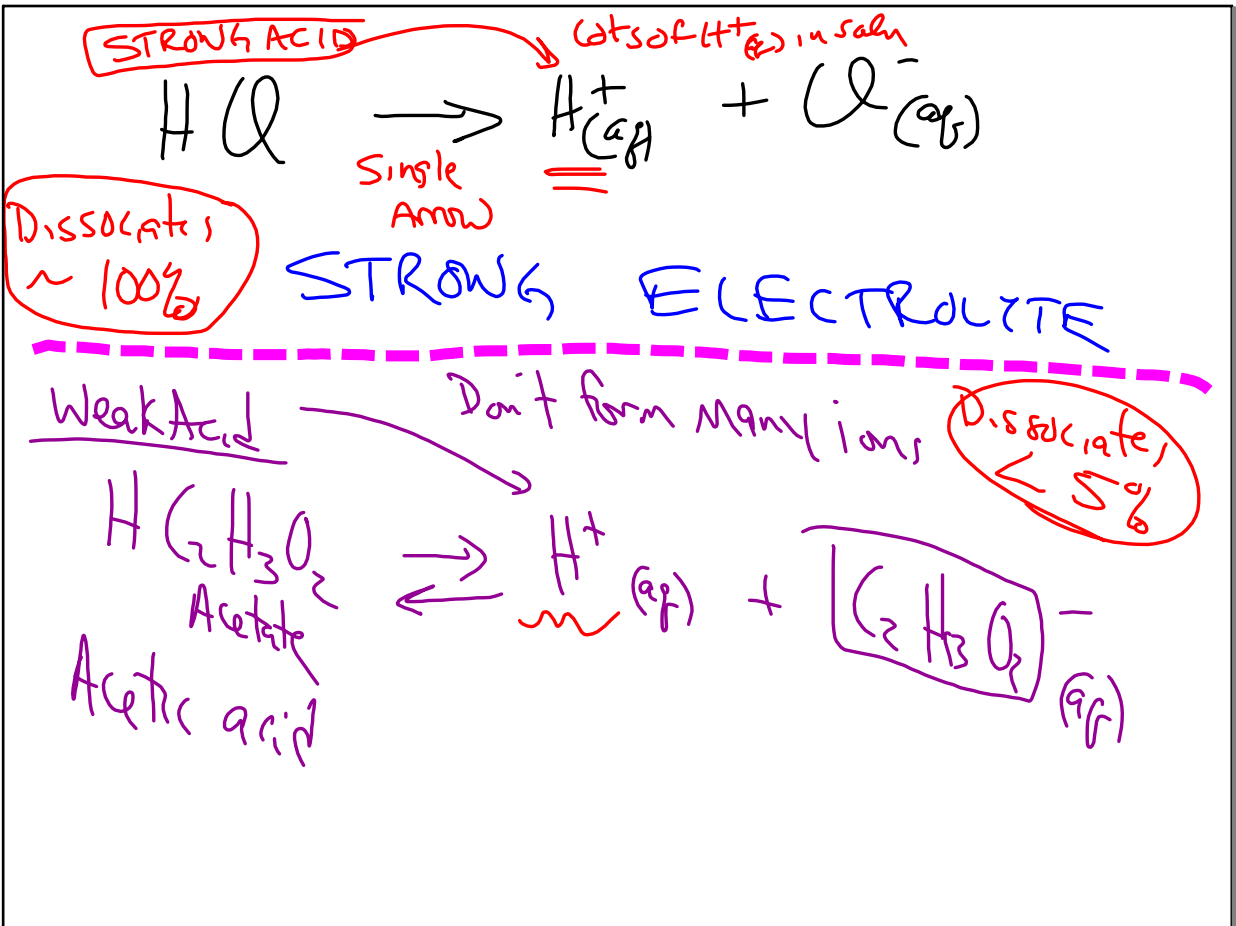 STRONG ACID
Lots of H⁺(aq) in soln
HCl → H⁺(aq) + Cl⁻(aq)
Single
Arrow
Dissociates
~ 100%
STRONG ELECTROLYTE
Weak Acid
Don't form Many ions
Dissociates
< 5%
HC₂H₃O₂ ⇌ H⁺(aq) + C₂H₃O₂⁻(aq)
Acetate
Acetic acid